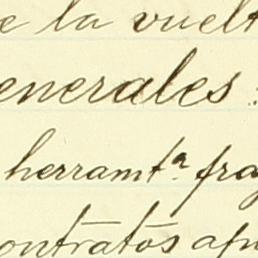 e la vuelt
enerales:
herramtª. fra
ontratos apr